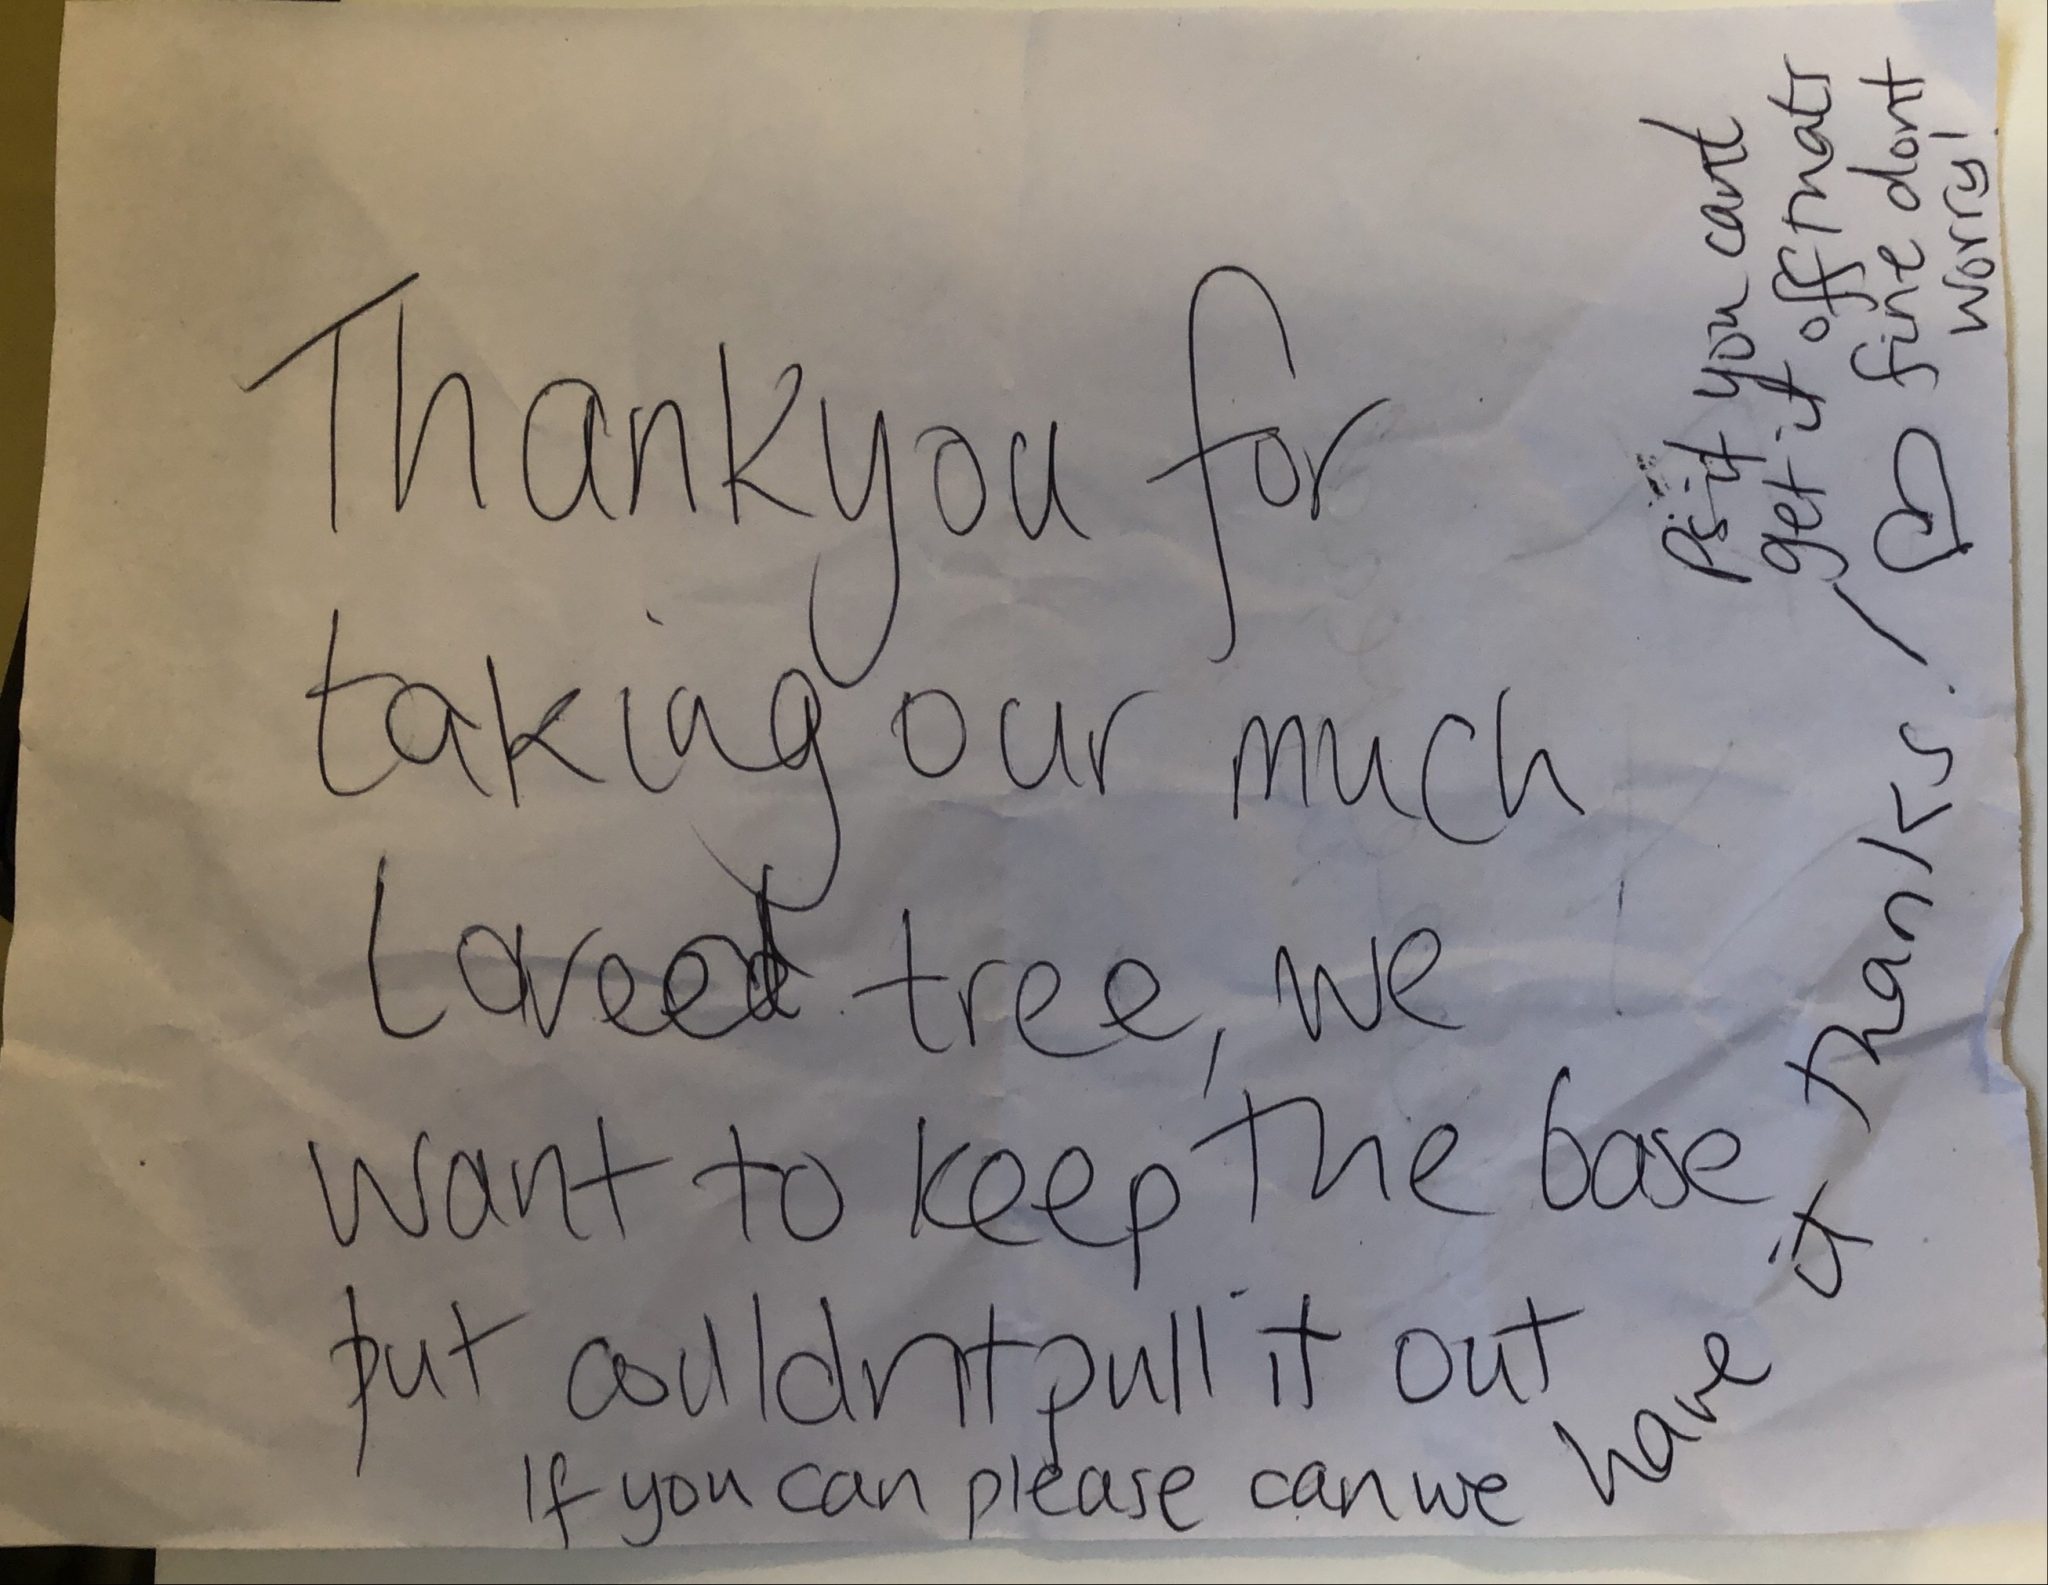 Thankyou for
taking our much
Loveed tree, we
want to keep the base
but couldnt pull it out
If you can please can we have it thanks!
Ps if you cant
get it off thats
fine dont
worry!